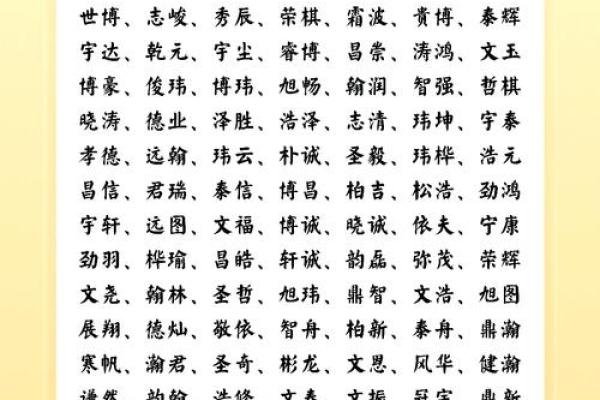 世博、志峻、秀辰、荣棋、霜波、贵博、泰辉
宇达、乾元、宇尘、睿博、昌崇、涛鸿、文玉
博豪、俊玮、博玮、旭畅、翰润、智强、哲棋
晓涛、德业、泽胜、浩泽、志清、玮坤、宇泰
孝德、远翰、玮云、朴诚、圣毅、玮桦、浩元
昌信、君瑞、泰信、博昌、柏吉、松浩、劲鸿
宇轩、远图、文福、博诚、晓诚、依夫、宁康
劲羽、桦瑜、昌皓、轩诚、韵磊、弥茂、荣辉
文尧、翰林、圣哲、旭玮、鼎智、文浩、旭图
展翔、德灿、敬依、智舟、柏新、泰舟、鼎瀚
寒帆、瀚君、圣奇、彬龙、文恩、风华、健瀚
谦然、韵翰、浩修、文泰、文振、冠宇、鼎新